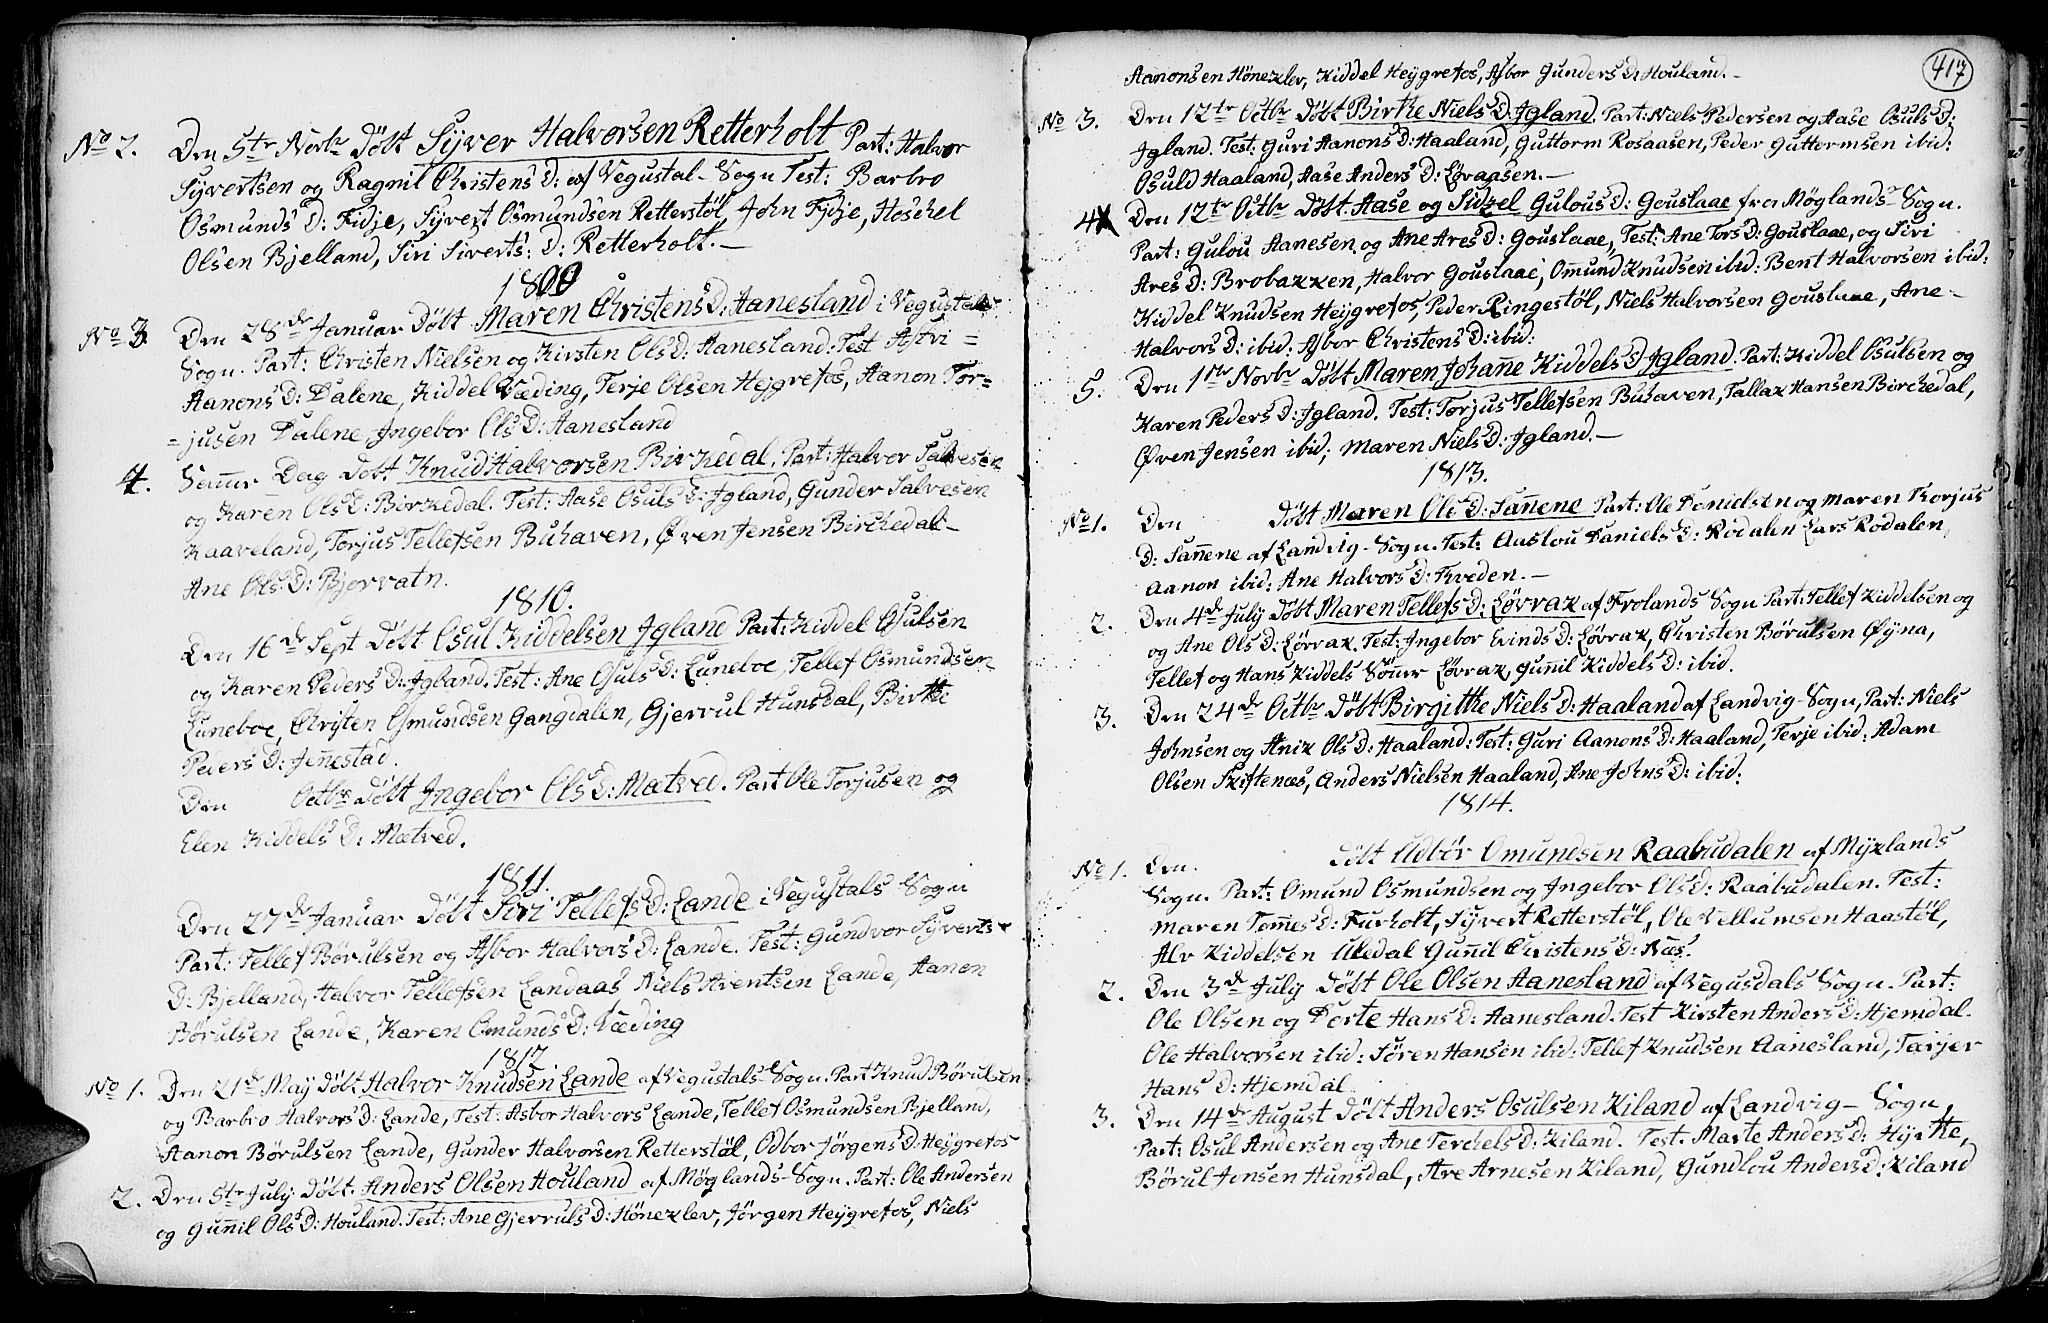 No 2. Den 5te Novbr Døbt Syver Halvorsen Retterholt Part: Halvor
Syvertsen og Ragnil Christens D: af Vegustal Sogn Test: Barbro
Osmunds D: Fidje, Syvert Osmundsen Retterstøl, John Fidje, Hoschel
Olsen Bjelland, Siri Siverts: D: Retterholt.—
1809
No 3 Den 28de Januar Døbt Maren Christens D: Aanesland i Vegustals
Sogn. Part: Christen Nielsen og Kirsten Ols D: Aanesland: Test Astri=
Aanons D: Dalene, Kiddel Væding, Terje Olsen Heygrefos, Aanon Tor=
=jusen Dalene Ingebor Ols D: Aanesland
4. Samme Dag Døbt Knud Halvorsen Birkedal. Part: Halvor Salvesen
og Karen Ols D: Birkedal. Test: Aase Osuls D: Igland, Gunder Salvesen
Kaaveland, Torjus Tellefsen Buhaven, Øven Jensen Birchedal-
Ane Ols D: Bjorvatn.
1810.
Den 16de Sept Døbt Osul Kiddelsen Igland Part: Kiddel Osulsen
og Karen Peders D: Igland. Test: Ane Osuls D: Luneboe, Tellef Osmundsen
Luneboe, Christen Osmundsen Gangdalen, Gjervul Hunsdal, Birthe
Peders D: Jennestad.
Den Octbr Døbt Ingebor Ols D: Mætved. Part Ole Torjusen og
Elen Kiddels D: Mætved.
1811.
Den 27de Januar Døbt Siri Tellefs D: Lande i Vegustals Sogn
Part: Tellef Børulsen og Asbor Halvors D: Lande. Test: Gundvor Syverts
D: Bjelland, Halvor Tellefsen Landaas Niels Arentsen Lande, Aanon
Børulsen Lande, Karen Omunds D: Væding
1812
No 1. Den 21de May Døbt Halvor Knudsen Lande af Vegustals Sogn. Part Knud Børulsen
og Barbro Halvors D: Lande, Test: Asbor Halvors Lande, Tellef Osmundsen Bjelland,
Aanon Børulsen Lande, Gunder Halvorsen Retterstøl, Odbor Jørgens D: Heygrefos
2. Den 5te July Døbt. Anders Olsen Houland af Møglands Sogn. Part: Ole Andersen
og Gunnil Ols D: Houland. Test: Ane Gjerruls D: Hønezlev, Jørgen Heygrefos, Niels
417
Aanonsen Hönezlev, Kiddel Heygrefos, Asbor Gunders D: Houland.-
No 3. Den 12te Octbr Døbt Birthe Niels D: Igland. Part: Niels Pedersen og Aase Osuls D:
Igland. Test: Guri Aanons D: Haaland, Guttorm Rosaasen, Peder Guttormsen ibid:
Osuld Haaland, Aase Anders D: Løvaasen.—
4 Den 12te Octbr Døbt. Aase og Sidzel Gulous D: Gouslaae fra Møglands Sogn.
Part: Gulou Aanesen og Ane Ares D: Gouslaae, Test: Ane Tors D: Gouslaae, og Siri
Ares D: Brobakken, Halvor Gouslaae, Omund Knudsen ibid: Bent Halvorsen ibid:
Kiddel Knudsen Heygrefos, Peder Ringestøl, Niels Halvorsen Gouslaae, Ane-
Halvors D: ibid: Asbor Christens D: ibid:
5. Den 1te Novbr Døbt Maren Johanne Kiddels D: Igland. Part: Kiddel Osulsen og
Karen Peders D: Igland. Test: Torjus Tellefsen Buhaven, Tallax Hansen Birchedal,
Øven Jensen ibid; Maren Niels D: Igland.—
1813.
No 1. Den Døbt Maren Ole D: Sannene Part: Ole Danielsen og Maren Thorjus
D: Sannene af Landvig-Sogn. Test: Auslou Daniels D: Rodalen Lars Rodalen,
Aanon ibid: Ane Halvors D: Kveden.—
2. Den 4de July Døbt Maren Tellefs D: Løvrak af Frolands Sogn Part: Tellef Kiddelsen og
og Ane Ols D: Løvrak. Test: Ingebor Evinds D: Løvrak, Christen Børulsen Øyna,
Tellef og Hans Kiddels Sønner Løvrak, Gunnil Kiddels D: ibid.
3. Den 24de Octbr Døbt Birgitthe Niels D: Haaland af Landvig-Sogn, Part: Niels
Johnsen og Anik Ols D: Haaland: Test: Guri Aanons D: Haaland, Terje ibid: Adam
Olsen Skiftenæs, Anders Nielsen Haaland, Ane Johns D: ibid:
1814.
No 1. Den. Døbt Udbør Omundsen Raabudalen af Myklands
Sogn. Part: Omund Osmundsen og Ingebor Ols D: Raabudalen. Test:
Maren Tommes D: Furholt, Syvert Retterstøl, Ole Vellumsen Haastøl,
Alv Kiddelsen Uledal Gunnil Christens D: Næs.
2. Den 3de July Døbt Ole Olsen Aanesland af Vegusdals Sogn. Part:
Ole Olsen og Dorte Hans D: Aanesland. Test Kirsten Anders D: Hjemdal.
Ole Halvorsen ibid: Søren Hansen ibid: Tellef Knudsen Aanesland, Tarjer
Hans D: Hjemdal
3. Den 14de August Døbt Anders Osulsen Kiland af Landvig- Sogn
Part: Osul Andersen og Ane Terchels D: Kiland. Test. Marte Anders D: Hytte,
Børul Jonsen Hunsdal, Are Arnesen Kiland, Gundlou Anders D: Kiland